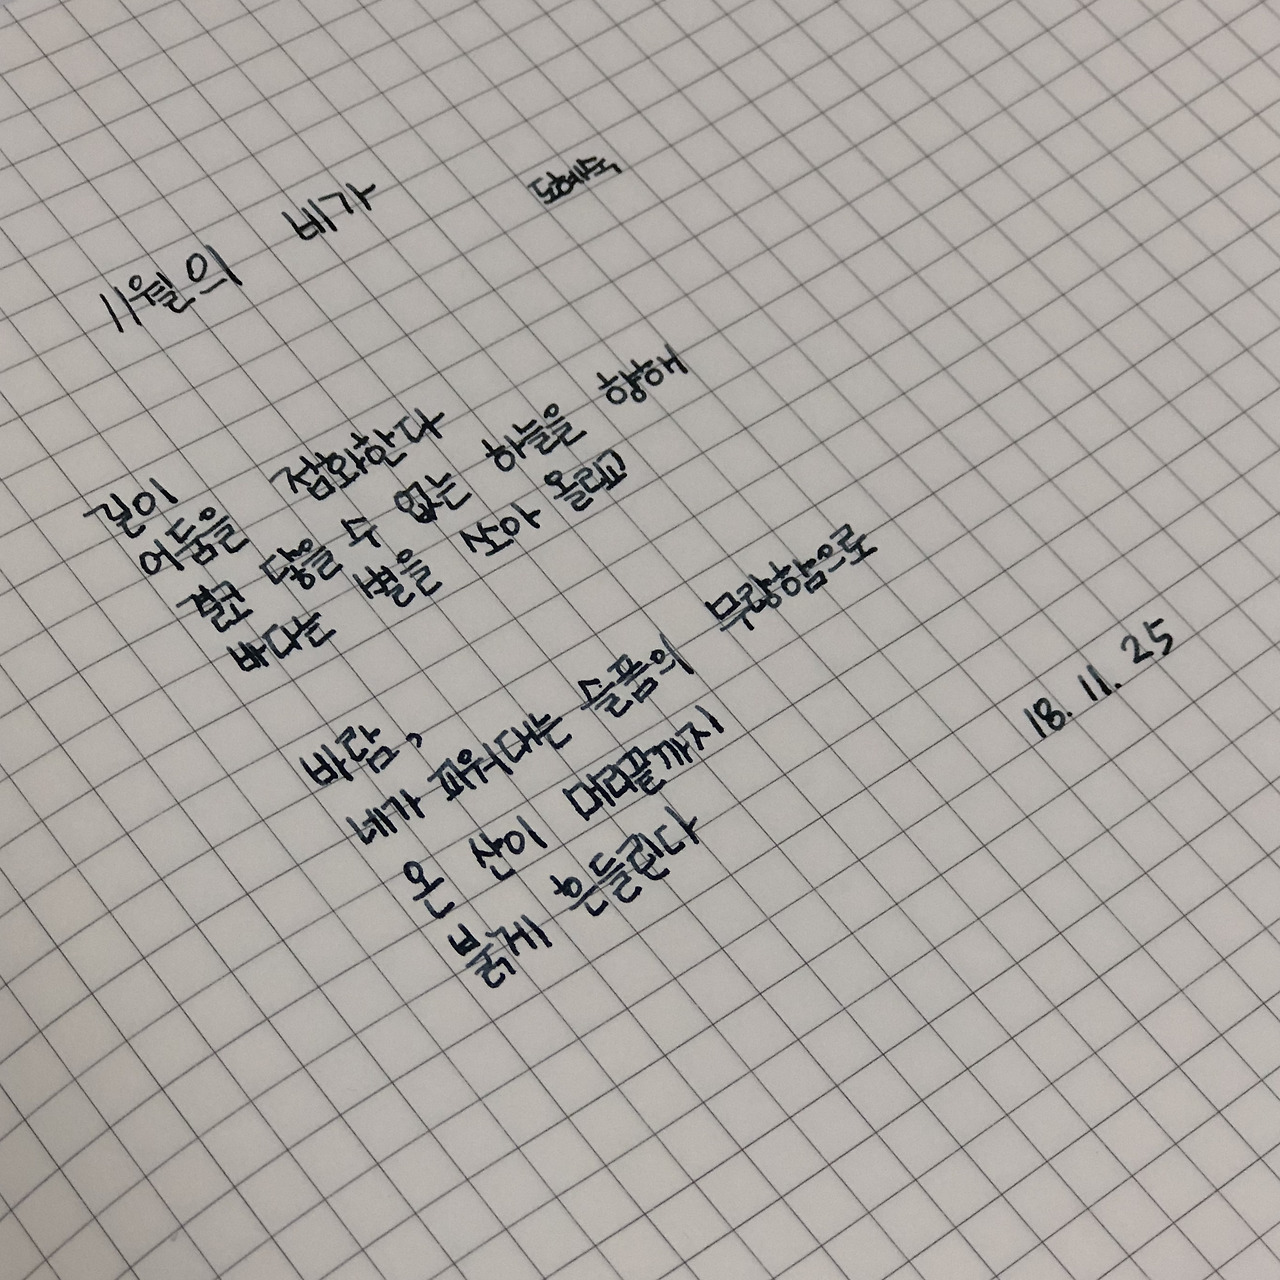 11월의 비가 도혜숙
길이
어둠을 점화한다
결코 닿을 수 없는 하늘을 향해
바다는 별을 쏘아 올리고
바람,
네가 피워대는 슬픔의 무량함으로
온 산이 머리끝까지
붉게 흔들린다
18. 11. 25